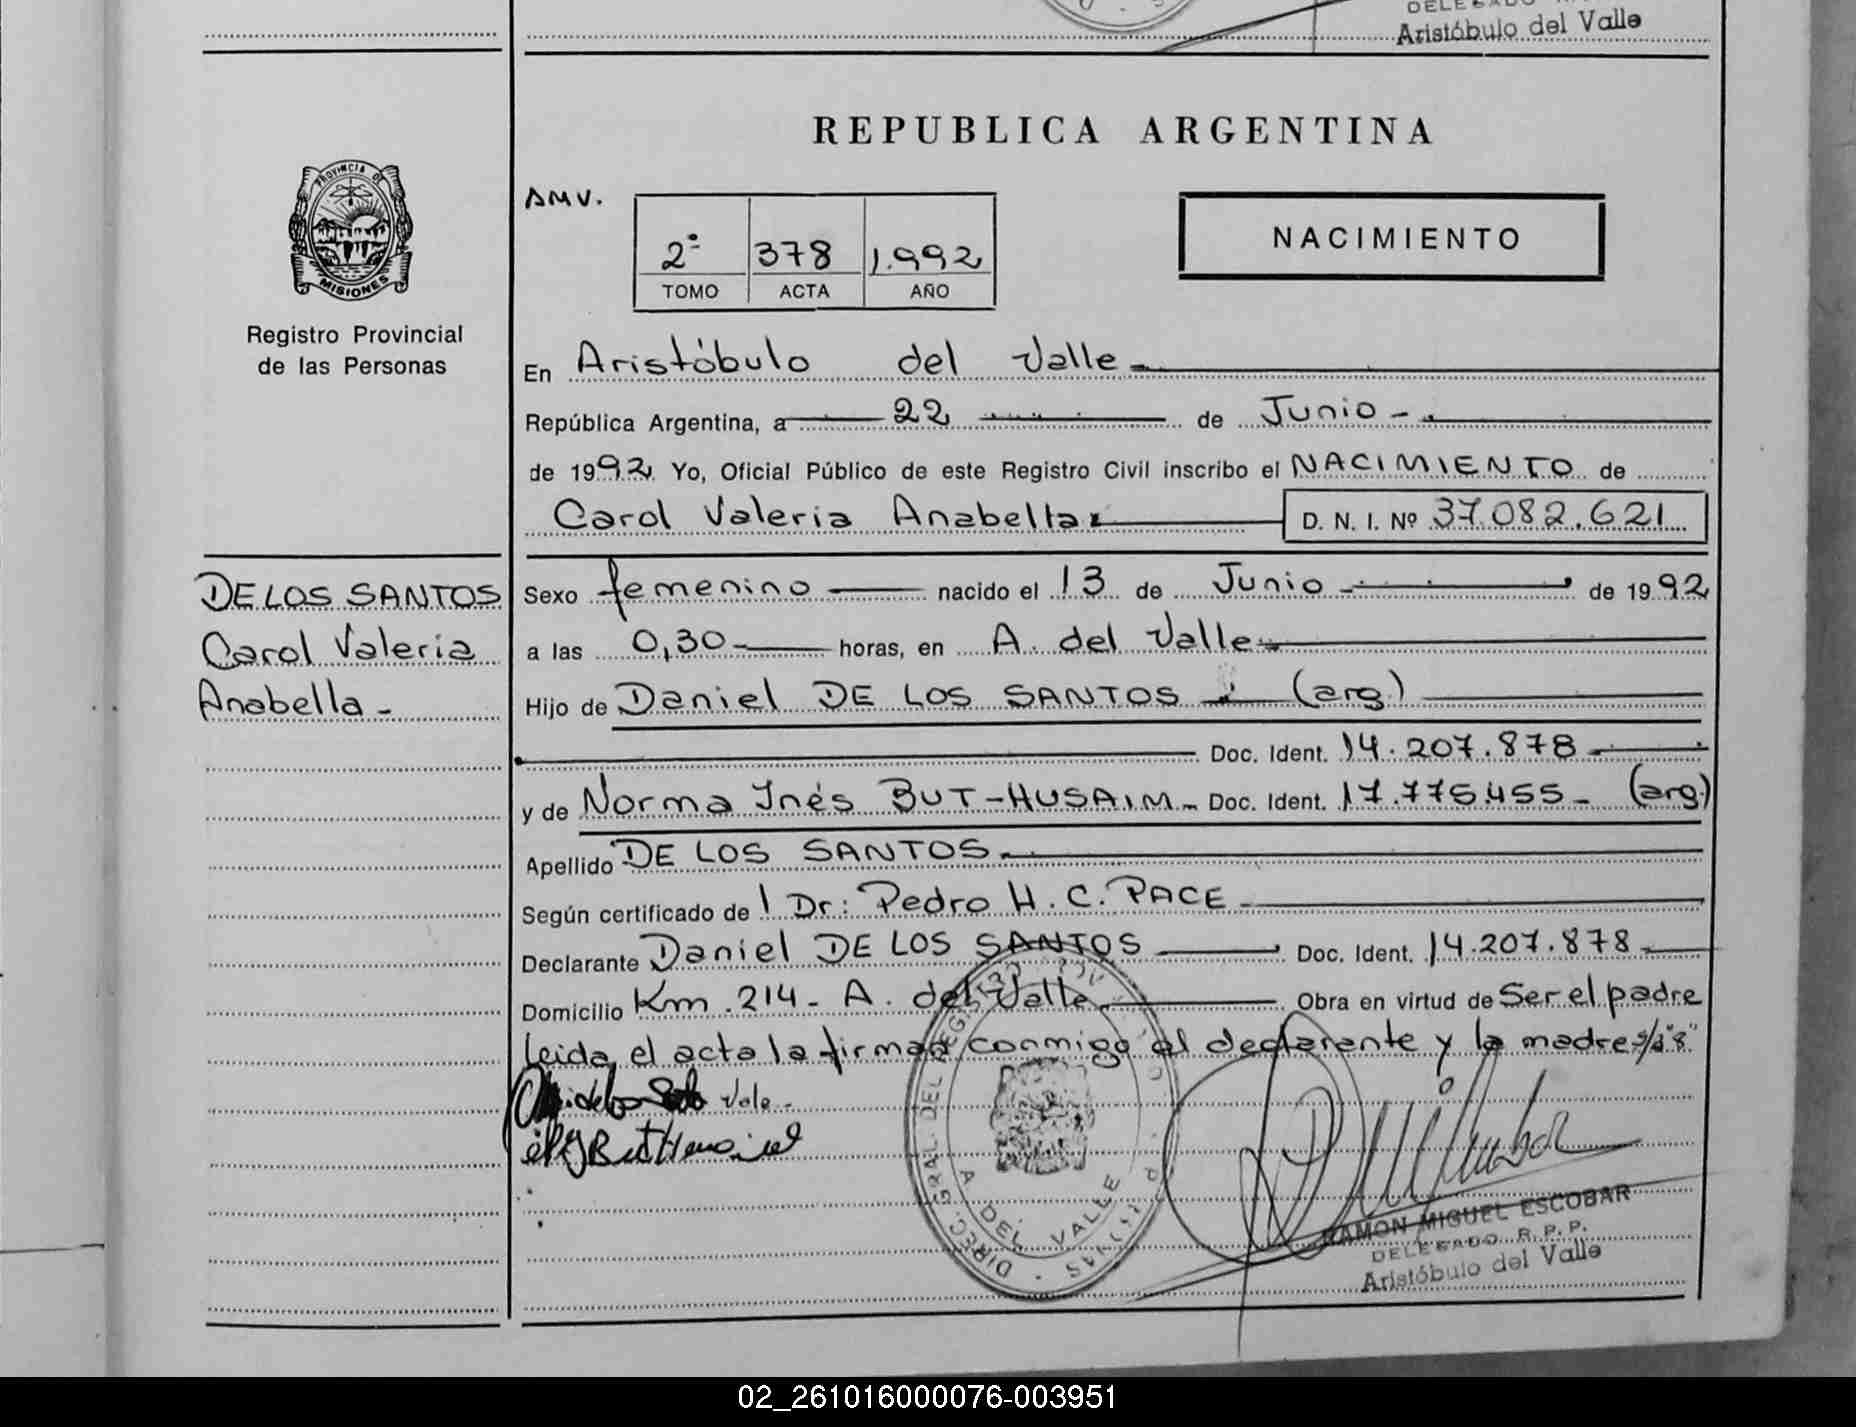 Aristóbulo del Valle
REPUBLICA ARGENTINA
PROVINCIA DE
MISIONES
Registro Provincial
de las Personas
AMV.
2º 378 1.992
TOMO ACTA AÑO
NACIMIENTO
En Aristóbulo del Valle
República Argentina, a 22 de Junio -
de 1992 Yo, Oficial Público de este Registro Civil inscribo el NACIMIENTO de
Carol Valeria Anabella D. N. I. Nº 37.082.621
DE LOS SANTOS
Carol Valeria
Anabella -
Sexo femenino nacido el 13 de Junio de 1992
a las 0,30 horas, en A. del Valle
Hijo de Daniel DE LOS SANTOS (arg.)
Doc. Ident. 14.207.878
y de Norma Inés BUT-HUSAIM - Doc. Ident. 17.775.455 - (arg.)
Apellido DE LOS SANTOS
Según certificado de l Dr: Pedro H. C. PACE
Declarante Daniel DE LOS SANTOS Doc. Ident. 14.207.878
Domicilio Km. 214 - A. del Valle Obra en virtud de Ser el padre
Leida el acta la firman conmigo el declarante y la madre
Vale -
DIREC. GRAL. DEL REGISTRO
A. DEL VALLE
RAMON MIGUEL ESCOBAR
DELEGADO R. P. P.
Aristóbulo del Valle
02_261016000076-003951